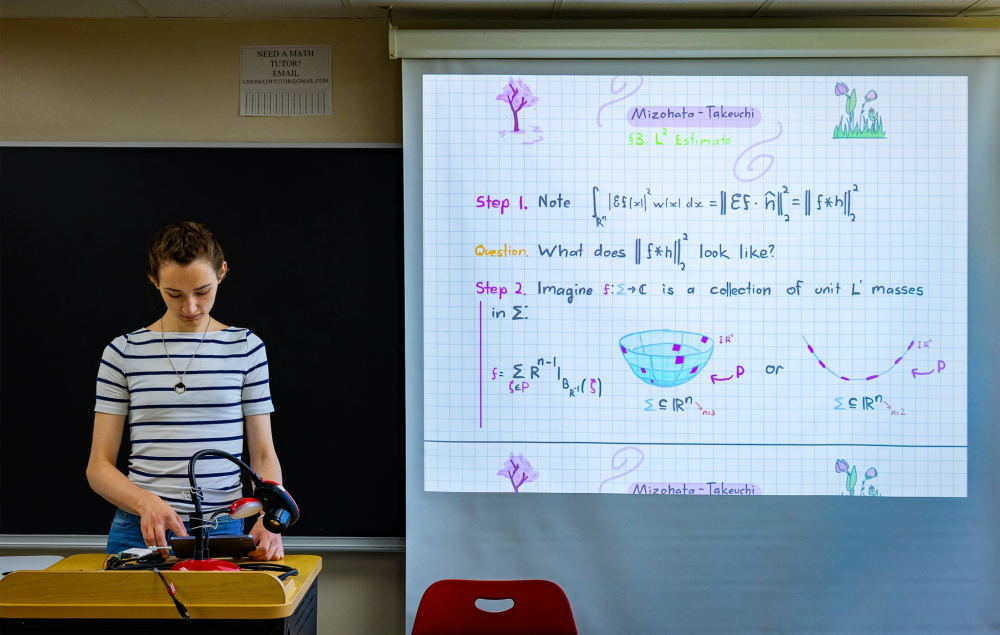 NEED A MATH
TUTOR?
EMAIL
UMDMATHTUTOR@GMAIL.COM
Mizohata-Takeuchi
§3: L² Estimate
Step 1. Note ∫_ℝⁿ |Ef(x)|² w(x) dx = ‖Ef · ĥ‖₂² = ‖f*h‖₂²
Question. What does ‖f*h‖₂² look like?
Step 2. Imagine f:Σ→ℂ is a collection of unit L¹ masses
in Σ:
f = Σ_{ζ∈P} R^{n-1} 1_{B_{R⁻¹}(ζ)}
IR⁻¹
P
or
IR⁻¹
P
Σ ⊆ ℝⁿ n=3
Σ ⊆ ℝⁿ n=2
Mizohata-Takeuchi